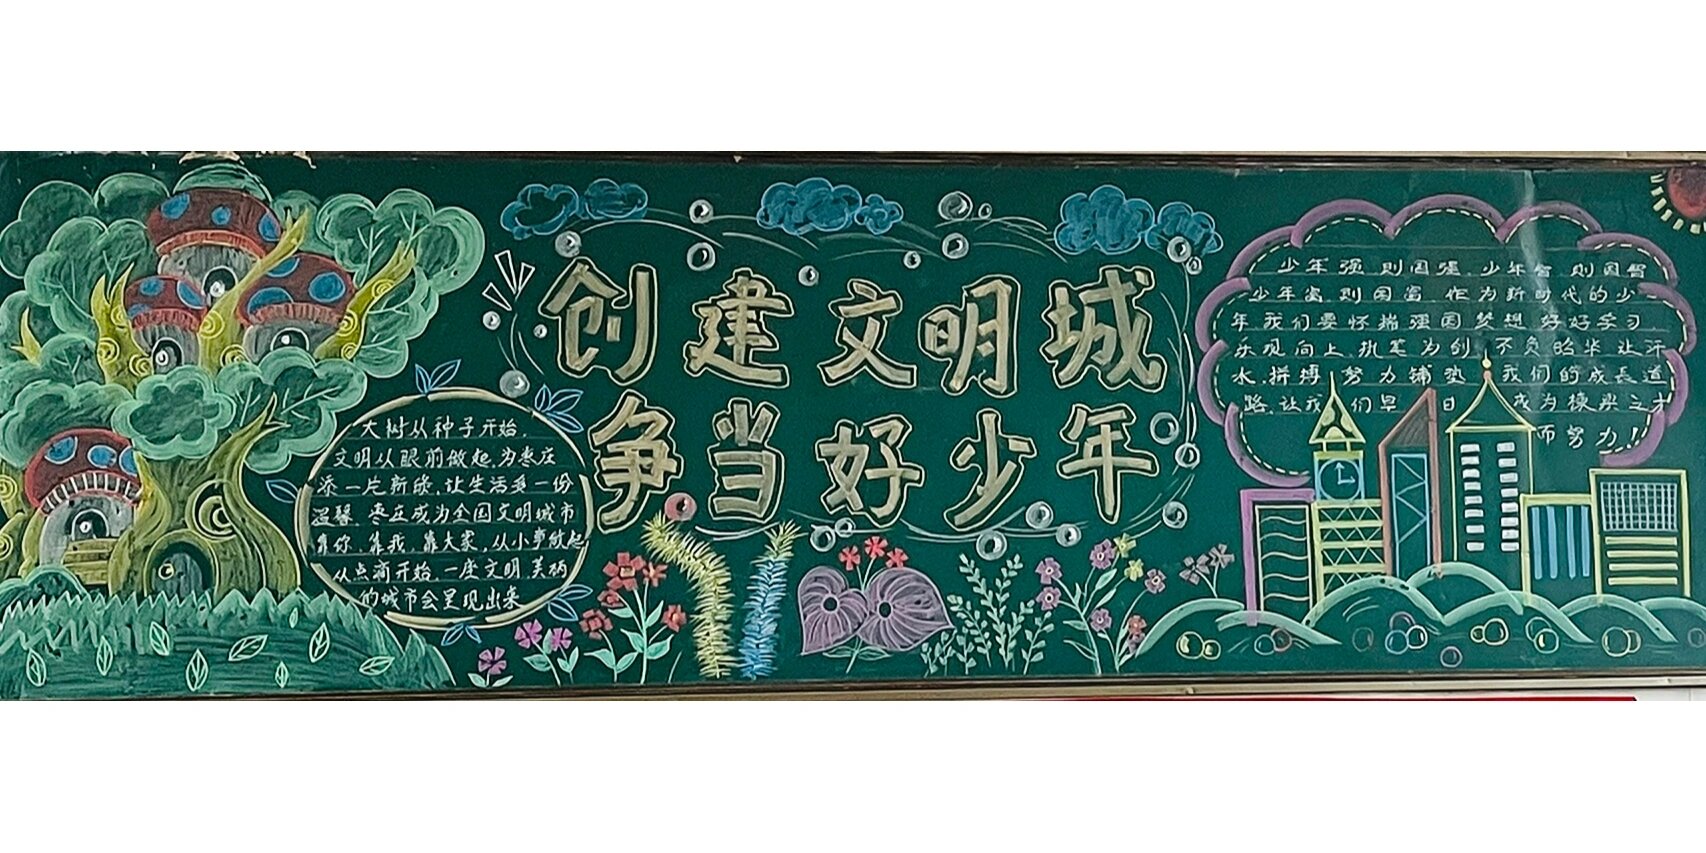 创建文明城
争当好少年
大树从种子开始.
文明从眼前做起,为枣庄
添一片新绿,让生活多一份
温馨. 枣庄成为全国文明城市
靠你、靠我、靠大家,从小事做起
从点滴开始,一座文明、美丽
的城市会呈现出来
少年强,则国强,少年智,则国智
少年富,则国富,作为新时代的少
年我们要怀揣强国梦想,好好学习,
乐观向上,执笔为剑,不负韶华,让汗
水、拼搏、努力铺垫 我们的成长道
路,让我们早日成为栋梁之才
而努力!